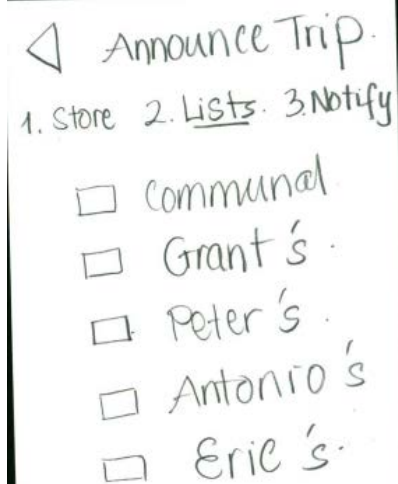 Announce Trip.
1. Store 2. Lists. 3. Notify
Communal
Grant's.
Peter's.
Antonio's
Eric's.